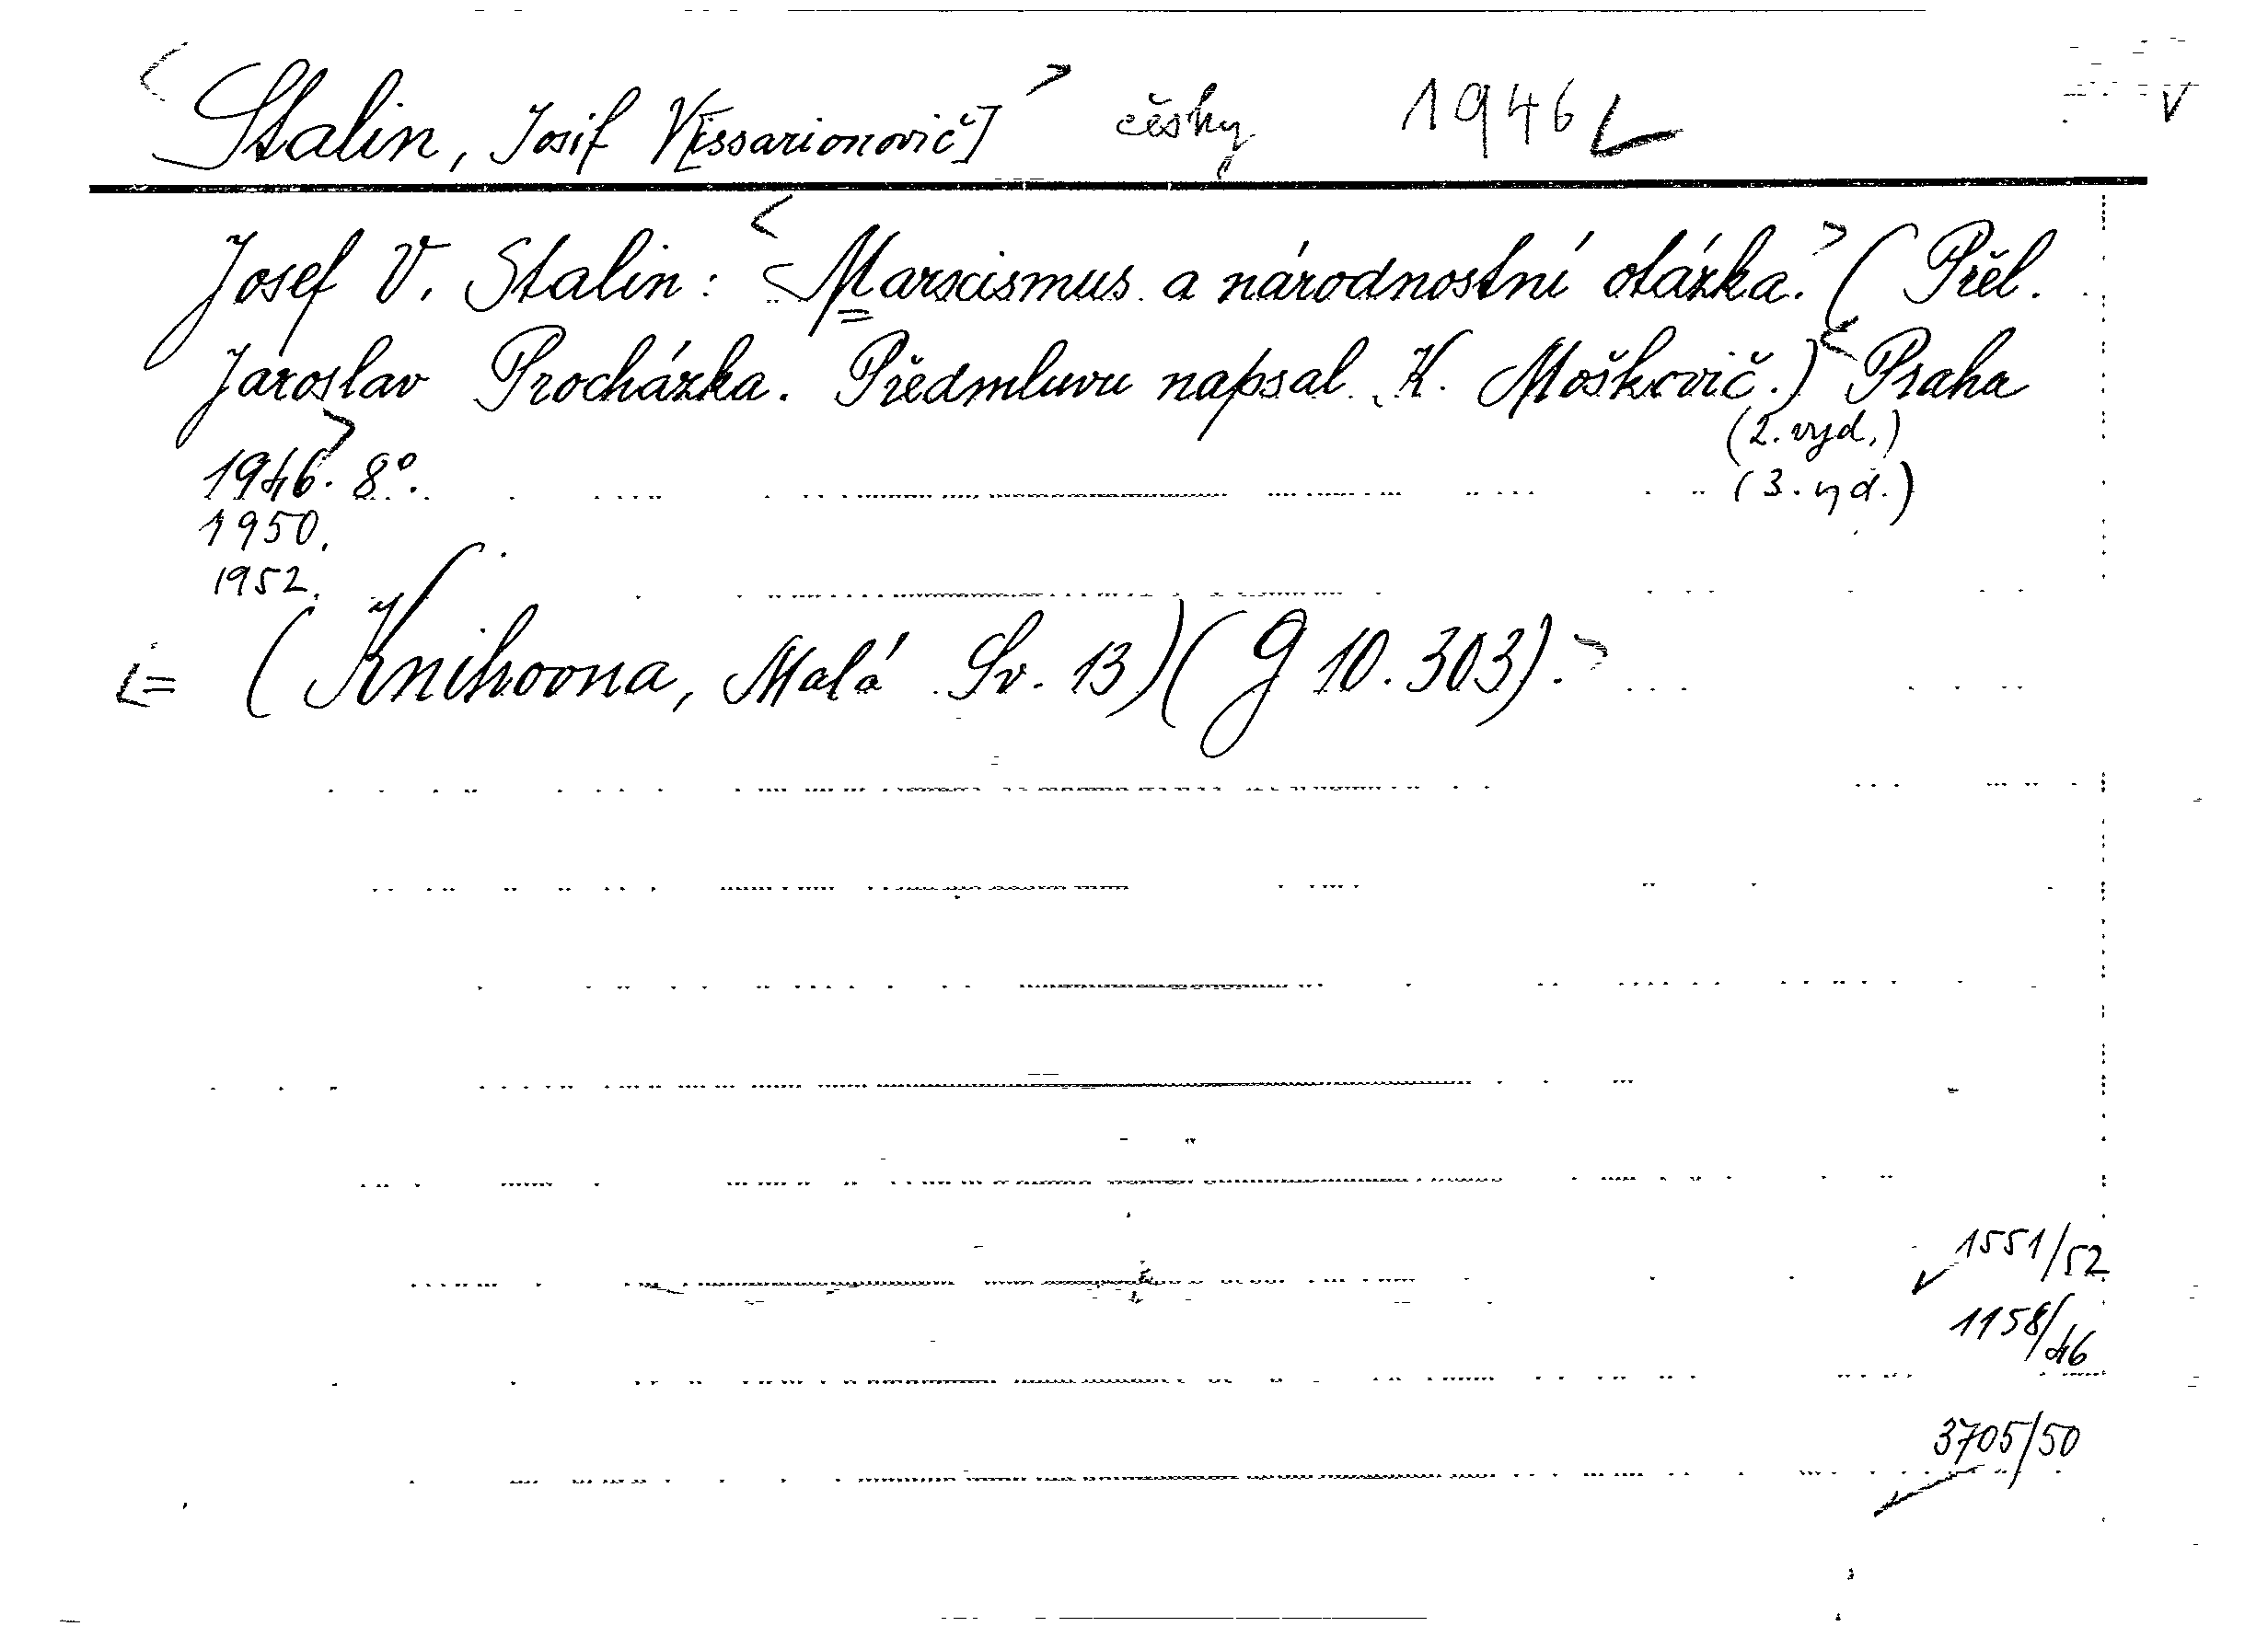 Stalin, Josif V[issarionovič] česky 1946
Josef V. Stalin: Marxismus a národnostní otázka. (Přel.
Jaroslav Procházka. Předmluvu napsal K. Moškovič.) Praha
(2. vyd.)
1946. 8°. (3. vyd.)
1950.
1952.
= (Knihovna, Malá Sv. 13) (g 10.303).
1551/52
1158/46
3705/50